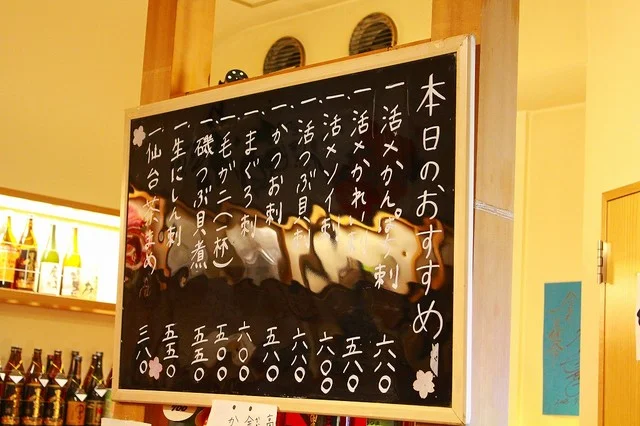 本日のおすすめ
一活〆かんぱち刺 六八〇
一活〆かれい刺 五八〇
一活〆ソイ刺 六〇〇
一活つぶ貝刺 六八〇
一かつお刺 五八〇
一まぐろ刺 六〇〇
一毛がニ(一杯) 五〇〇
一磯つぶ貝煮 五五〇
一生にしん刺 五五〇
一仙台 まめ 三八〇